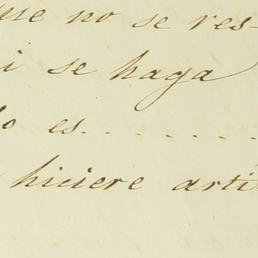 que no se res-
i se haga
lo es........
hiciere arti